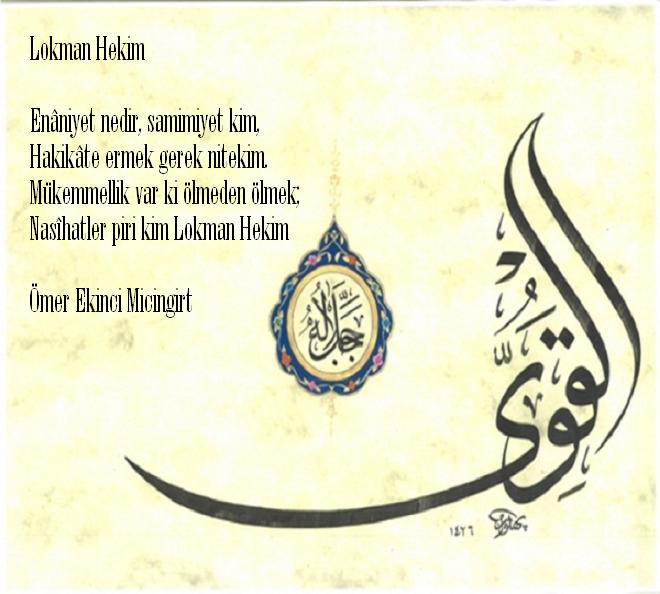 Lokman Hekim
Enâniyet nedir, samimiyet kim,
Hakikâte ermek gerek nitekim.
Mükemmellik var ki ölmeden ölmek;
Nasîhatler piri kim Lokman Hekim
Ömer Ekinci Micingirt
جل جلاله
القوي
١٤٢٦